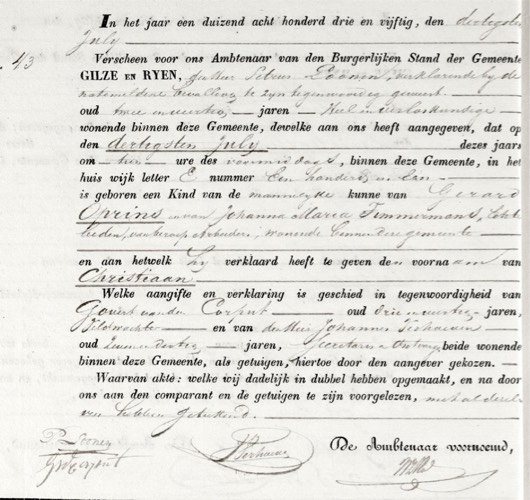 In het jaar een duizend acht honderd drie en vijftig, den dertigsten
July
43
Verscheen voor ons Ambtenaar van den Burgerlijken Stand der Gemeente
GILZE EN RYEN, de Heer Petrus verklarende by de
natemeldene bevalling te zyn tegenwoordig geweest
oud twee en veertig jaren Heel en verloskundige
wonende binnen deze Gemeente, dewelke aan ons heeft aangegeven, dat op
den dertigsten July dezes jaars
om ure des voormiddags, binnen deze Gemeente, in het
huis wijk letter E nummer Een honderd en Een
is geboren een Kind van de mannelyke kunne van Gerard
Oprins en van Johanna Maria Timmermans,
lieden, van beroep Arbeiders, wonende binnen deze gemeente
en aan hetwelk hy verklaard heeft te geven den voornaam van
Christiaan
Welke aangifte en verklaring is geschied in tegenwoordigheid van
Govert van den Corput oud drie en veertig jaren,
Veldwachter en van den Heer Johannes
oud Zeven en dertig jaren, Secretaris beide wonende
binnen deze Gemeente, als getuigen, hiertoe door den aangever gekozen.
Waarvan akte: welke wij dadelijk in dubbel hebben opgemaakt, en na door
ons aan den comparant en de getuigen te zijn voorgelezen, met al dezelve
hebben geteekend.
De Ambtenaar voornoemd,